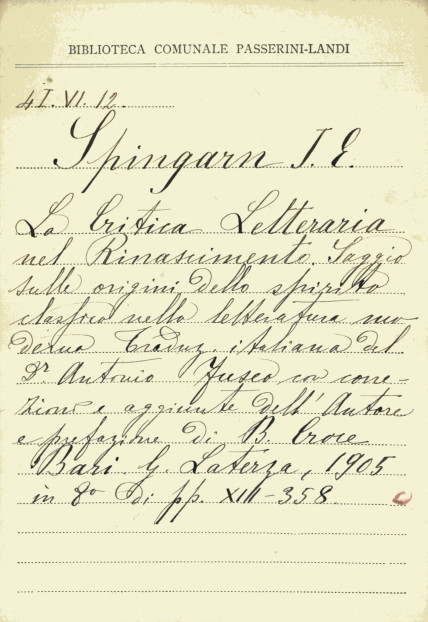 BIBLIOTECA COMUNALE PASSERINI-LANDI
4I. VI. 12.
Spingarn I. E.
La Critica Letteraria
nel Rinascimento. Saggio
sulle origini dello spirito
classico nella letteratura mo-
derna Traduz. italiana del
Dr Antonio Fusco con corre-
zioni e aggiunte dell'Autore
e prefazione di B. Croce
Bari G. Laterza, 1905
in 8o di pp. XIII-358.